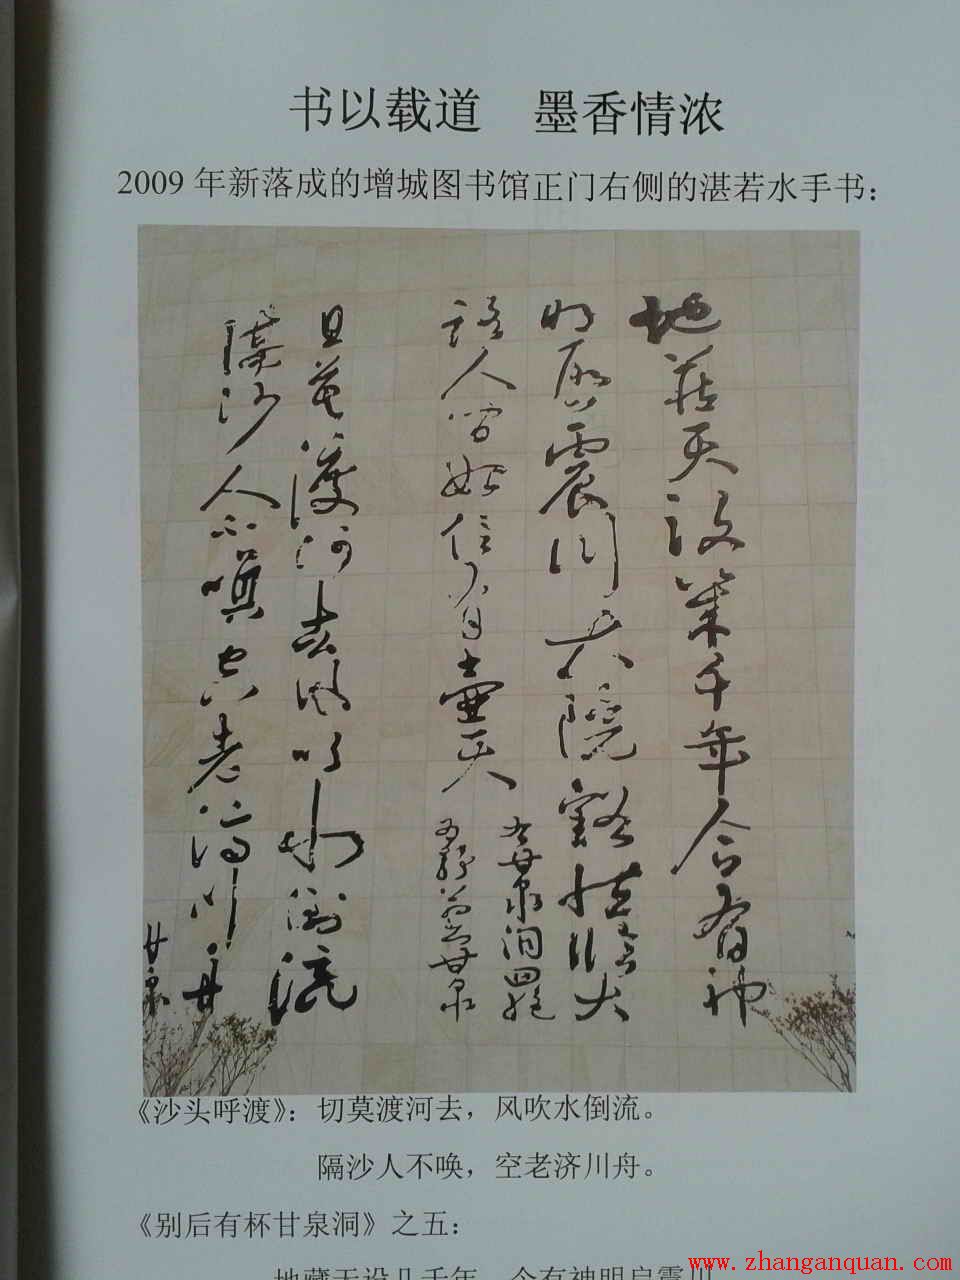 书以载道 墨香情浓
2009 年新落成的增城图书馆正门右侧的湛若水手书：
地藏天設幾千年今有神
明啟震川大
人間始信有壺天
右甘泉洞四絕
甘泉
且莫渡河去風吹水倒流
隔沙人不喚空老濟川舟
甘泉
《沙头呼渡》：切莫渡河去，风吹水倒流。
隔沙人不唤，空老济川舟。
《别后有杯甘泉洞》之五：
地藏天设几千年，今有神明启震川
www.zhanganquan.com